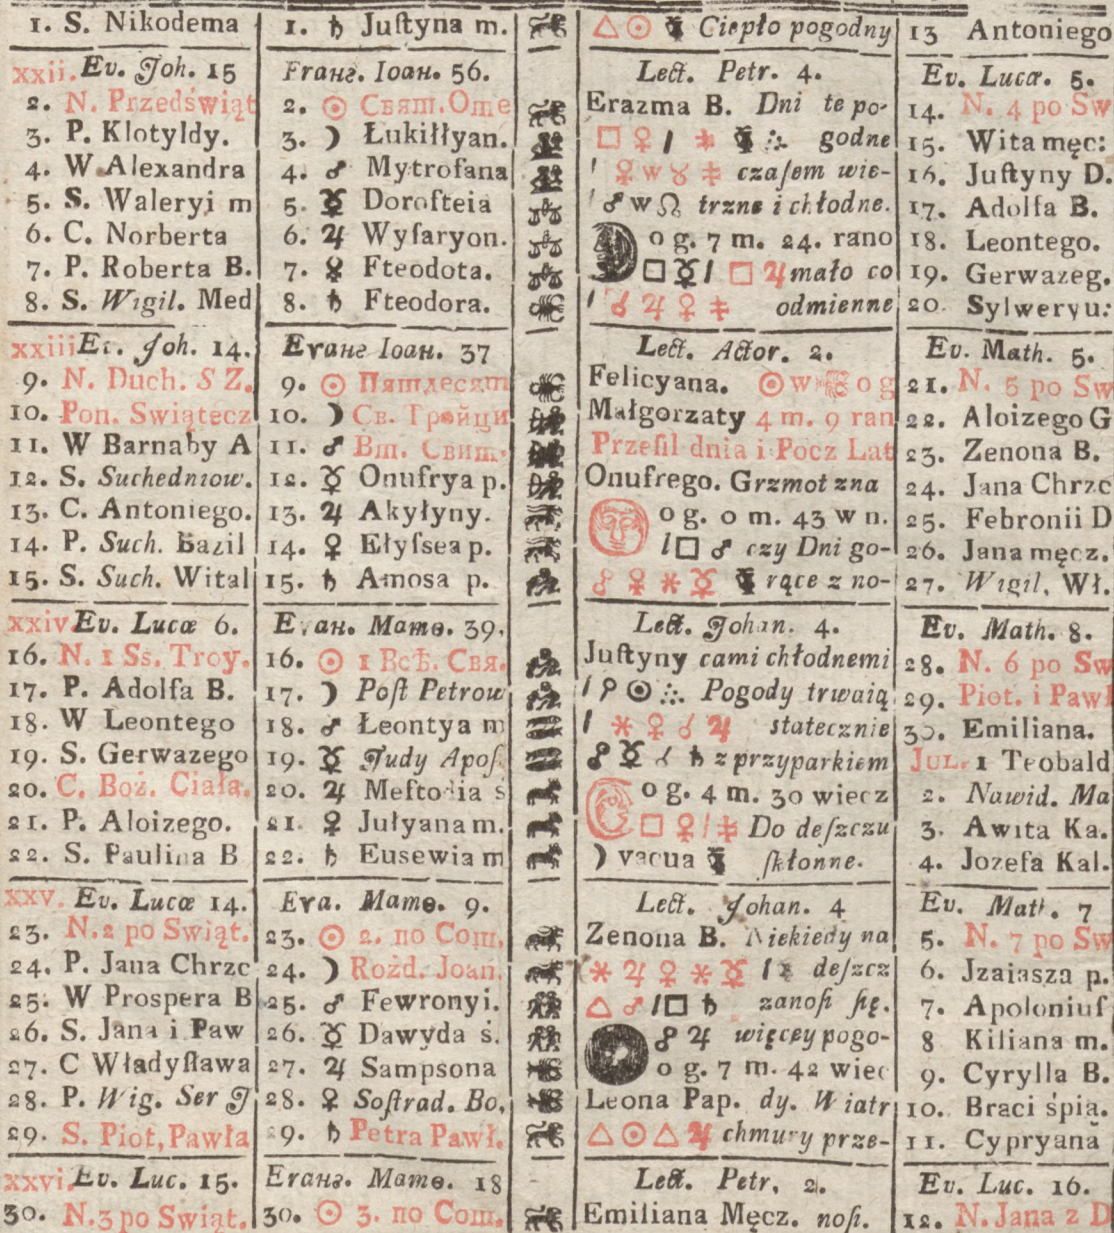 1. S. Nikodema
xxii. Ev. Joh. 15
2. N. Przedświąt
3. P. Klotyldy.
4. W. Alexandra
5. S. Waleryi m
6. C. Norberta
7. P. Roberta B.
8. S. Wigil. Med
xxiii Ev. Joh. 14.
9. N. Duch. S Z.
10. Pon. Swiątecz
11. W Barnaby A
12. S. Suchedniow.
13. C. Antoniego.
14. P. Such. Bazil
15. S. Such. Wital
xxiv Ev. Lucæ 6.
16. N. 1 Ss. Troy.
17. P. Adolfa B.
18. W Leontego
19. S. Gerwazego
20. C. Boż. Ciała.
21. P. Aloizego.
22. S. Paulina B
xxv. Ev. Lucæ 14.
23. N. 2 po Swiąt.
24. P. Jana Chrzc
25. W Prospera B
26. S. Jana i Paw
27. C Władyſława
28. P. Wig. Ser J
29. S. Piot, Pawła
xxvi. Ev. Luc. 15.
30. N. 3 po Swiąt.
1. ♄ Juſtyna m.
Еванг. Ioан. 56.
2. ☉ Свят. Оте
3. ☽ Łukiłłyan.
4. ♂ Mytrofana
5. ☿ Doroſteia
6. ♃ Wyſaryon.
7. ♀ Fteodota.
8. ♄ Fteodora.
Еѵанг Ioан. 37
9. ☉ Пятдесят
10. ☽ Св. Тройци
11. ♂ Вт. Свит.
12. ☿ Onufrya p.
13. ♃ Akyłyny.
14. ♀ Ełyſsea p.
15. ♄ Amosa p.
Еѵан. Матѳ. 39.
16. ☉ 1 Всѣ. Свя.
17. ☽ Poſt Petrow
18. ♂ Łeontya m
19. ☿ Judy Apoſ.
20. ♃ Meftodia s
21. ♀ Jułyana m.
22. ♄ Eusewia m
Еѵа. Матѳ. 9.
23. ☉ 2. по Сош.
24. ☽ Rożd. Joan.
25. ♂ Fewronyi.
26. ☿ Dawyda s.
27. ♃ Sampsona
28. ♀ Soſtrad. Bo,
29. ♄ Petra Pawł.
Еѵанг. Матѳ. 18
30. ☉ 3. по Сош.
△ ☉ Ciepło pogodny
Lect. Petr. 4.
Erazma B. Dni te po-
□ ♀ godne
♀ w ♉ czaſem wie-
♂ w ♌ trzne i chłodne.
o g. 7 m. 24. rano
□ ☿ □ ♃ mało co
☌ ♃ ♀ odmienne
Lect. Actor. 2.
Felicyana. ☉ w ♋ o g
Małgorzaty 4 m. 9 ran
Przeſil dnia i Pocz Lat
Onufrego. Grzmot zna
o g. 0 m. 43 w n.
□ ♂ czy Dni go-
☍ ♀ ⚹ ☿ rące z no-
Lect. Johan. 4.
Juſtyny cami chłodnemi
☉ Pogody trwaią
⚹ ♀ ☌ ♃ statecznie
☍ ☿ ☌ ♄ z przyparkiem
o g. 4 m. 30 wiecz
□ ♀ Do deſzczu
☽ vacua ſkłonne.
Lect. Johan. 4
Zenona B. Niekiedy na
⚹ ♃ ♀ ⚹ ☿ deſzcz
△ ♂ □ ♄ zanoſi ſię.
☍ ♃ więcey pogo-
o g. 7 m. 42 wiec
Leona Pap. dy. Wiatr
△ ☉ △ ♃ chmury prze-
Lect. Petr, 2.
Emiliana Męcz. noſi.
13 Antoniego
Ev. Lucæ. 5.
14. N. 4 po Sw
15. Wita męc:
16. Juſtyny D.
17. Adolfa B.
18. Leontego.
19. Gerwazeg.
20. Sylweryu:
Ev. Math. 5.
21. N. 5 po Sw
22. Aloizego G
23. Zenona B.
24. Jana Chrzc
25. Febronii D
26. Jana męcz.
27. Wigil. Wł.
Ev. Math. 8.
28. N. 6 po Sw
29. Piot. i Pawł
30. Emiliana.
JUL. 1 Teobald
2. Nawid. Ma
3. Awita Ka.
4. Jozefa Kal.
Ev. Math. 7
5. N. 7 po Sw
6. Jzaiasza p.
7. Apoloniuſ
8 Kiliana m.
9. Cyrylla B.
10. Braci śpią.
11. Cypryana
Ev. Luc. 16.
12. N. Jana z D